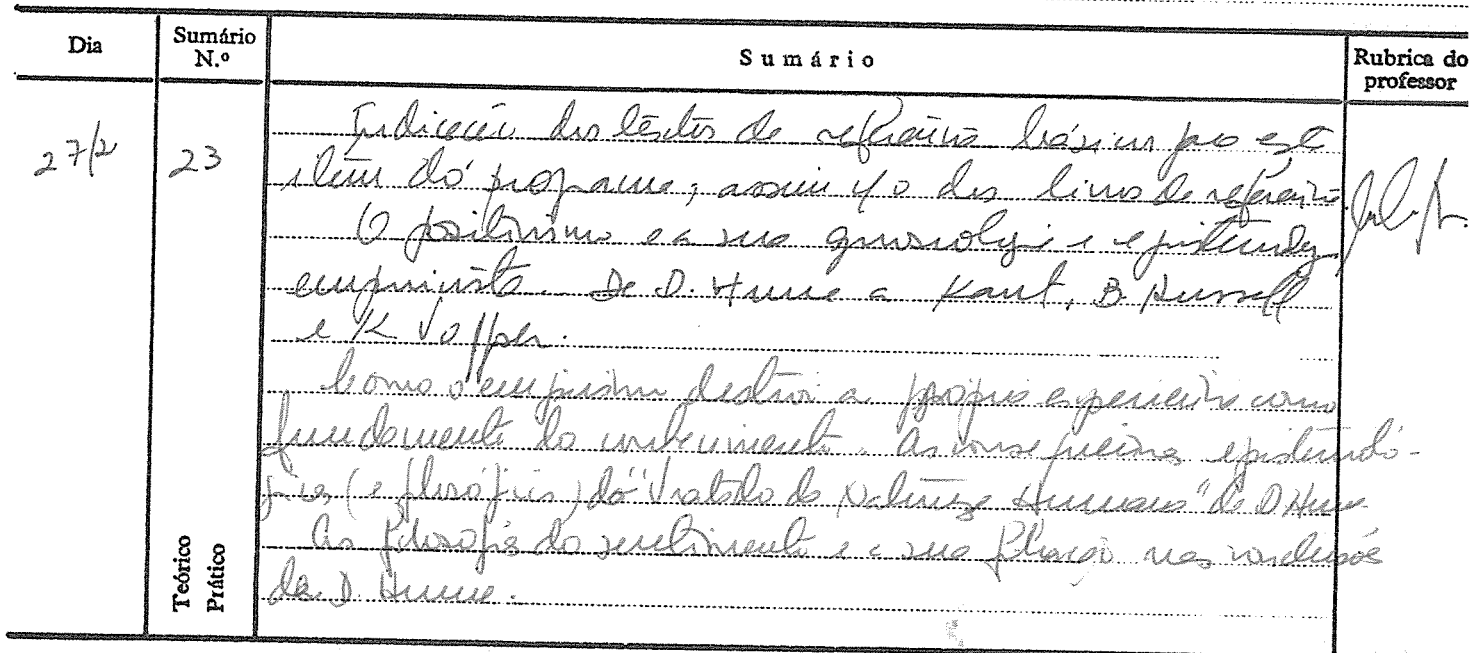 Dia
Sumário N.º
Sumário
Rubrica do professor
27/2
23
Indicação dos textos de referência básicos para este
item do programa, assim c/o dos livros de referência.
O positivismo e a sua gnosiologia e epistemolog.
empirista. De D. Hume a Kant, B. Russell
e K. Popper.
Como o empirismo destroi a própria experiência como
fundamento do conhecimento. As consequências epistemoló-
gicas (e filosóficas) do "Tratado da Natureza Humana" de D. Hume
As filosofias do sentimento e a sua filiação nas conclusões
de D. Hume.
Teórico
Prático